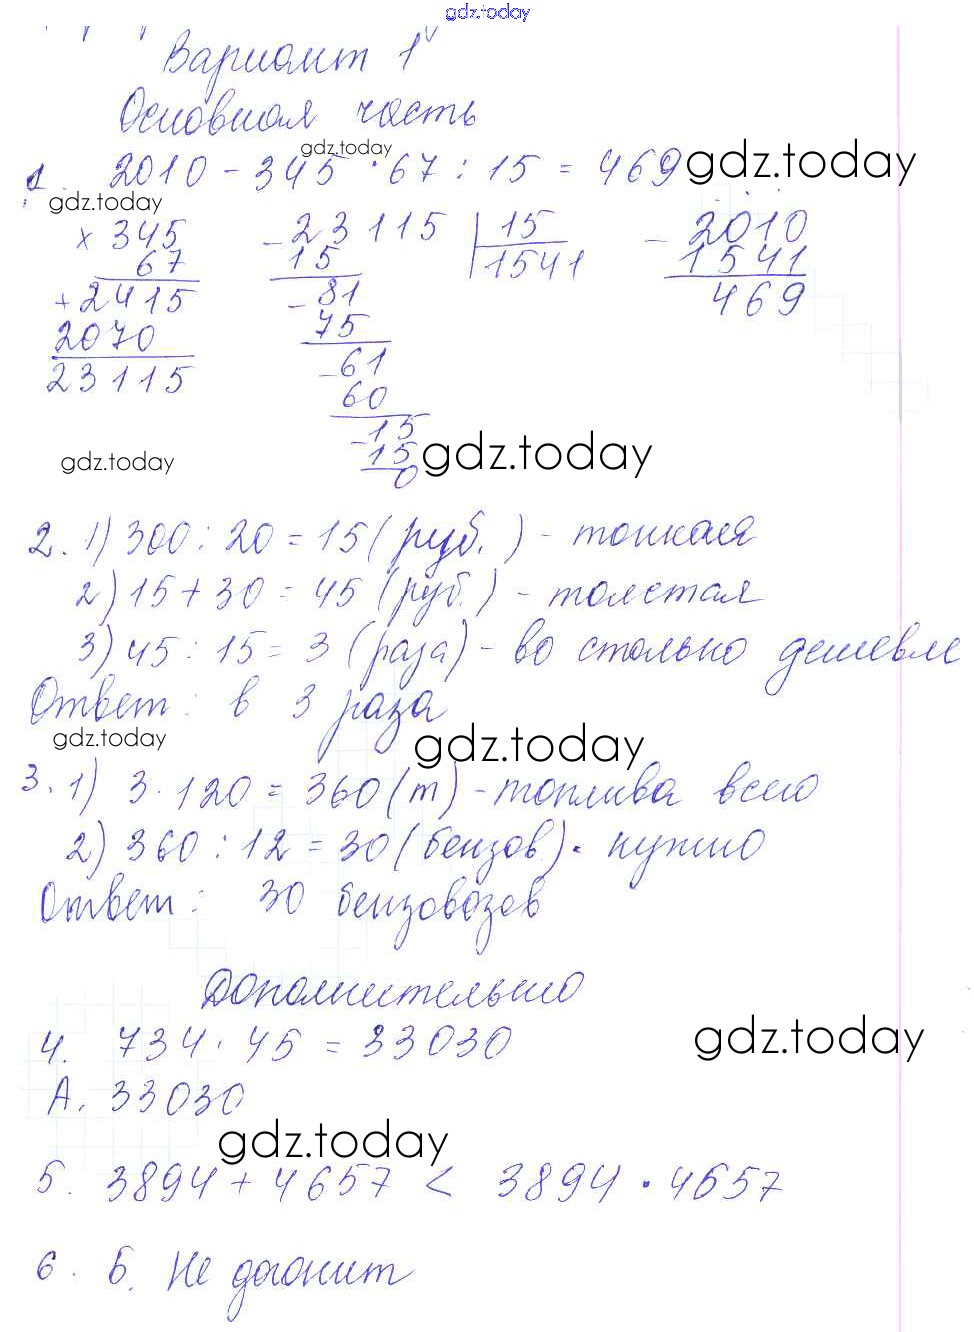 gdz.today
Вариант 1
Основная часть
gdz.today
1. 2010 - 345 · 67 : 15 = 469 gdz.today
gdz.today
× 345
67
+ 2415
2070
23115
- 23115 | 15
15 1541
- 81
75
- 61
60
- 15
15
0
- 2010
1541
469
gdz.today
gdz.today
2. 1) 300 : 20 = 15 (руб.) - тонкая
2) 15 + 30 = 45 (руб.) - толстая
3) 45 : 15 = 3 (раза) - во столько дешевле
Ответ: в 3 раза
gdz.today
gdz.today
3. 1) 3 · 120 = 360 (т) - топлива всего
2) 360 : 12 = 30 (бензов). нужно
Ответ: 30 бензовозов
Дополнительно
4. 734 · 45 = 33030
gdz.today
А. 33030
gdz.today
5. 3894 + 4657 < 3894 · 4657
6. Б. Не догонит